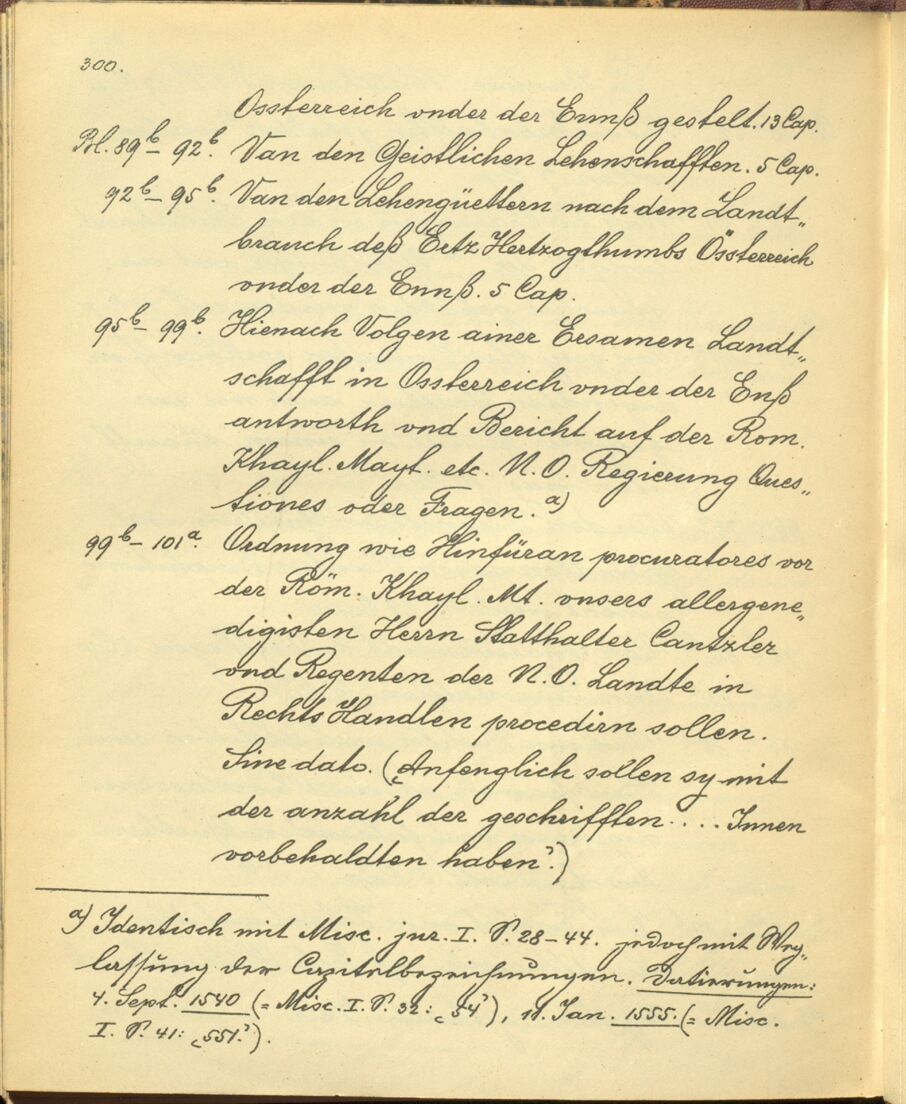 300.
Ossterreich vnder der Ennß gestelt. 13 Cap.
Bl. 89b – 92b. Van den Geistlichen Lehenschafften. 5 Cap.
92b – 95b. Van den Lehengüettern nach dem Landt„
brauch deß Ertz Hertzogthumbs Össterreich
vnder der Ennß. 5 Cap.
95b – 99b. Hienach Volgen ainer Ersamen Landt„
schafft in Ossterreich vnder der Enß
antworth vnd Bericht auf der Rom.
Khayl. Mayt. etc. N. O. Regierung Ques„
tiones oder Fragen. a)
99b – 101a. Ordnung wie Hinfüran procuratores vor
der Röm. Khayl. Mt. vnsers allergene„
digisten Herrn Statthalter Cantzler
vnd Regenten der N. O. Landte in
Rechts Handlen procedirn sollen.
Sine dato. (‚Anfenglich sollen sy mit
der anzahl der geschrifften .... Innen
vorbehaldten haben’.)
a) Identisch mit Misc. jur. I. S. 28–44. jedoch mit Weg„
lassung der Capitelbezeichnungen. Datierungen:
4. Sept. 1540 (= Misc. I. S. 32: ‚54’), 11. Jan. 1555. (= Misc.
I. S. 41: ‚551.’).